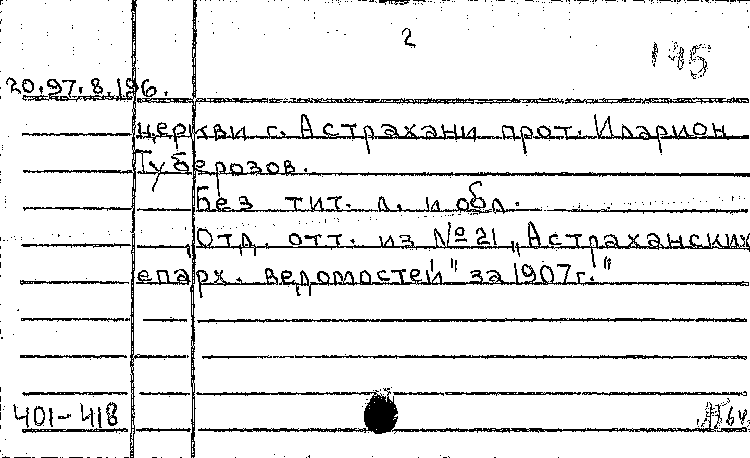 2
195
20.97.8.196.
церкви г. Астрахани прот. Иларион
Туберозов.
Без тит. л. и обл.
"Отд. отт. из №21 „Астраханских
епарх. ведомостей" за 1907г."
401-418